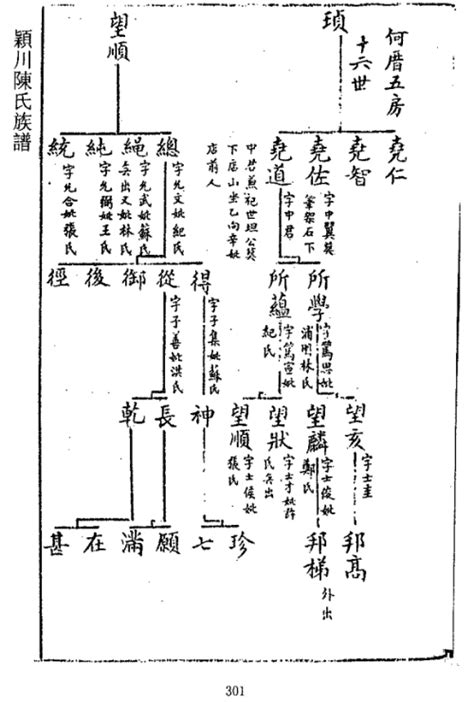 潁川陳氏族譜
何厝五房
十六世
瑱
堯仁
堯智
堯佐
字中翼葬
筆架石下
堯道
字中君
中君兼祀世坦公葬
下店山坐乙向辛妣
店前人
所學
字篤思妣
浦南林氏
所蘊
字篤宣妣
紀氏
望亥
字士圭
望麟
字士俊妣
鄭氏
望狀
字士才妣許
氏無出
望順
字士侯妣
張氏
邦髙
邦梯
外出
望順
總
字允文妣紀氏
繩
字允武妣蘇氏
無出又妣林氏
純
字允弼妣王氏
統
字允合妣張氏
得
字子集妣蘇氏
從
字子善妣洪氏
御
後
徑
神
長
乾
珍
七
願
滿
在
甚
301